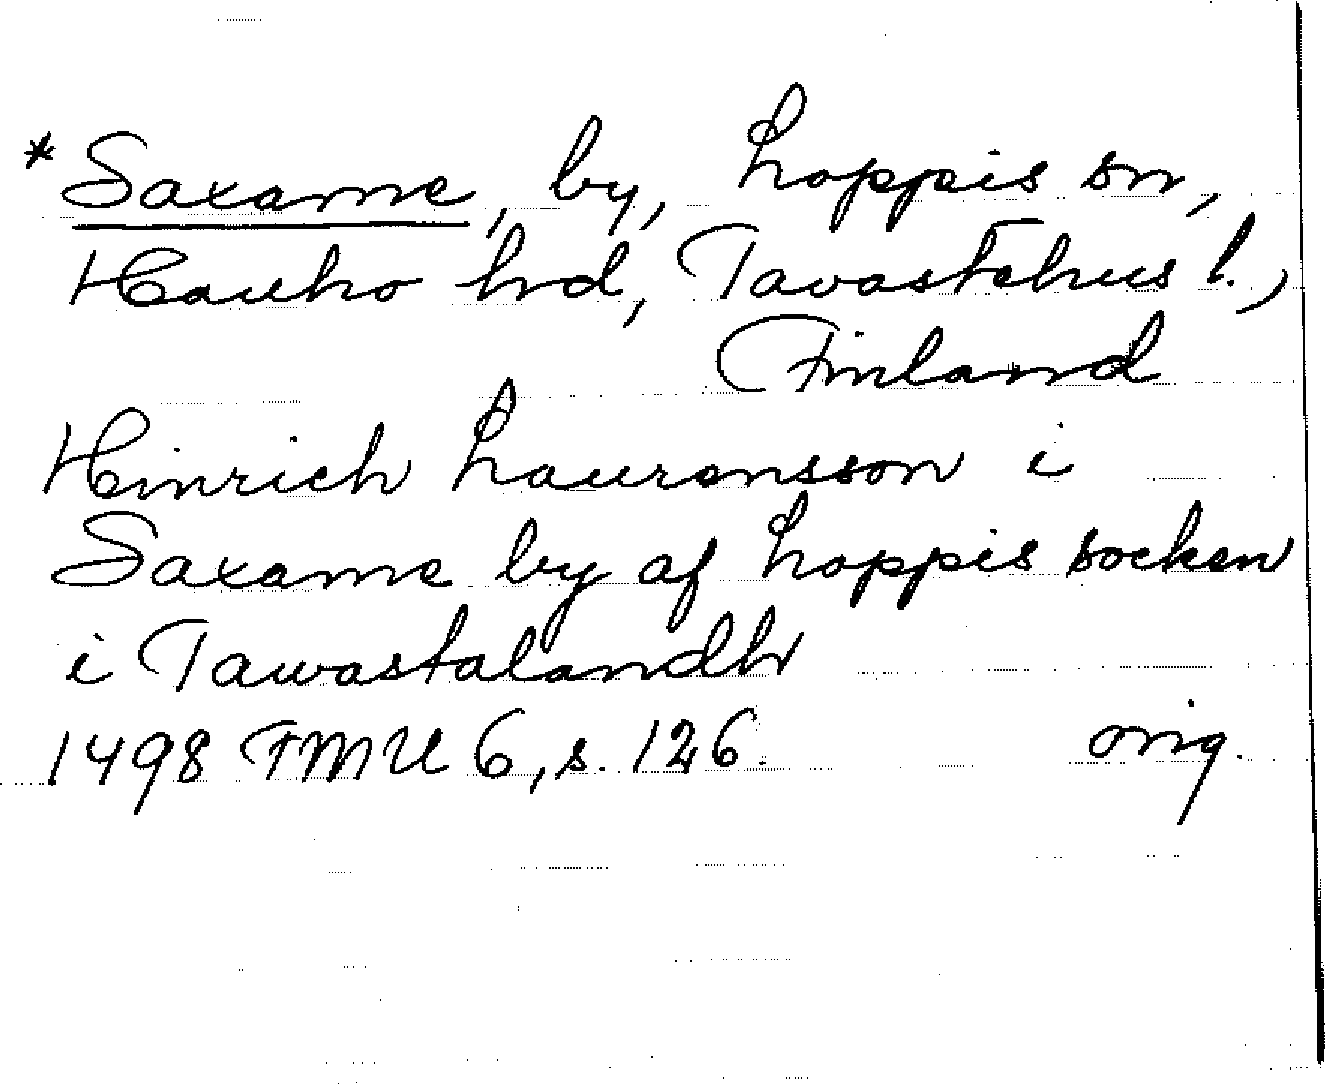 *Saxame, by, Loppis sn,
Hauho hrd, Tavastehus l.,
Finland
Hinrich Lauransson i
Saxame by af Loppis socken
i Tawastalandh
1498 FMU 6, s. 126. orig.